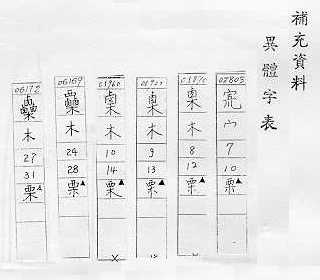 補充資料
異體字表
02805
宀
7
10
栗▲
木
8
12
栗▲
木
9
13
栗▲
木
10
14
栗▲
06169
木
24
28
栗▲
06172
木
27
31
栗▲